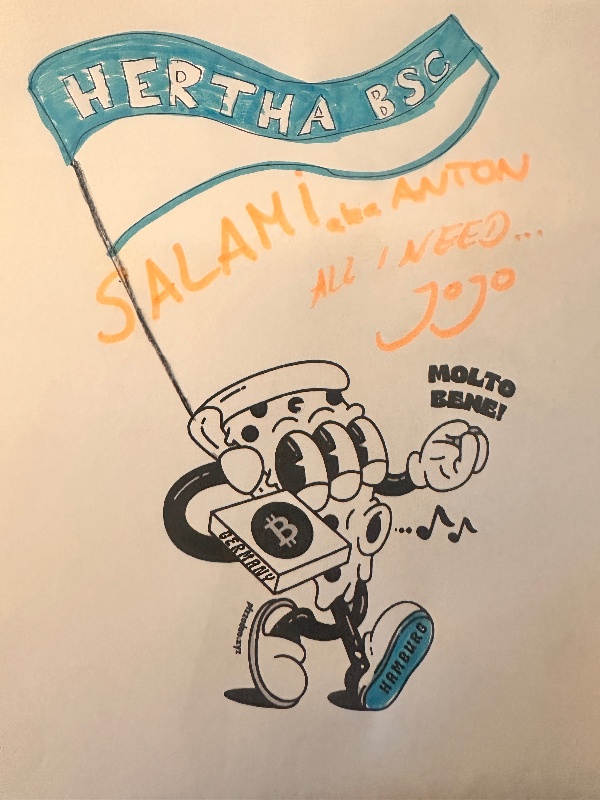 HERTHA BSC
SALAMI aka ANTON
ALL I NEED...
JOJO
MOLTO
BENE!
₿
GERMANY
pizzadao.xyz
HAMBURG